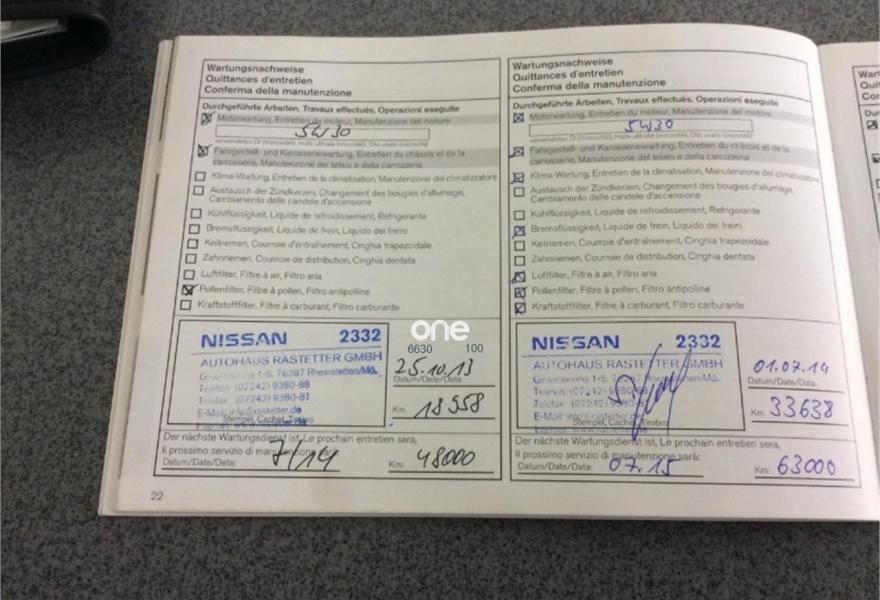 Wartungsnachweise
Quittances d'entretien
Conferma della manutenzione
Durchgeführte Arbeiten, Travaux effectués, Operazioni eseguite
Motorwartung, Entretien du moteur, Manutenzione del motore
5W30
verwendetes Öl (Viskosität), Huile utilisée (viscosité), Olio usato (viscosità)
Fahrgestell- und Karosseriewartung, Entretien du châssis et de la
carrosserie, Manutenzione del telaio e della carrozzeria
Klima-Wartung, Entretien de la climatisation, Manutenzione del climatizzatore
Austausch der Zündkerzen, Changement des bougies d'allumage,
Cambiamento delle candele d'accensione
Kühlflüssigkeit, Liquide de refroidissement, Refrigerante
Bremsflüssigkeit, Liquide de frein, Liquido dei freini
Keilriemen, Courroie d'entraînement, Cinghia trapezoidale
Zahnriemen, Courroie de distribution, Cinghia dentata
Luftfilter, Filtre à air, Filtro aria
Pollenfilter, Filtre à pollen, Filtro antipolline
Kraftstofffilter, Filtre à carburant, Filtro carburante
NISSAN 2332
AUTOHAUS RASTETTER GMBH
1-5, 76287 Rheinstetten/Mö.
Telefon (07242) 9380-88
Telefax (07242) 9380-81
E-Mail: info@rastetter.de
Stempel, Cachet, Timbro
25.10.13
Datum/Date/Data
Km 18558
Der nächste Wartungsdienst ist, Le prochain entretien sera,
Il prossimo servizio di manutenzione sarà:
Datum/Date/Data: 7/14 Km: 48000
22
one
6630 100
Wartungsnachweise
Quittances d'entretien
Conferma della manutenzione
Durchgeführte Arbeiten, Travaux effectués, Operazioni eseguite
Motorwartung, Entretien du moteur, Manutenzione del motore
5W30
verwendetes Öl (Viskosität), Huile utilisée (viscosité), Olio usato (viscosità)
Fahrgestell- und Karosseriewartung, Entretien du châssis et de la
carrosserie, Manutenzione del telaio e della carrozzeria
Klima-Wartung, Entretien de la climatisation, Manutenzione del climatizzatore
Austausch der Zündkerzen, Changement des bougies d'allumage,
Cambiamento delle candele d'accensione
Kühlflüssigkeit, Liquide de refroidissement, Refrigerante
Bremsflüssigkeit, Liquide de frein, Liquido dei freini
Keilriemen, Courroie d'entraînement, Cinghia trapezoidale
Zahnriemen, Courroie de distribution, Cinghia dentata
Luftfilter, Filtre à air, Filtro aria
Pollenfilter, Filtre à pollen, Filtro antipolline
Kraftstofffilter, Filtre à carburant, Filtro carburante
NISSAN 2332
AUTOHAUS RASTETTER GMBH
1-5, 76287 Rheinstetten/Mö.
Telefon (07242) 9380-88
Telefax (07242) 9380-81
E-Mail: info@rastetter.de
Stempel, Cachet, Timbro
01.07.14
Datum/Date/Data
Km 33638
Der nächste Wartungsdienst ist, Le prochain entretien sera,
Il prossimo servizio di manutenzione sarà:
Datum/Date/Data: 07.15 Km: 63000